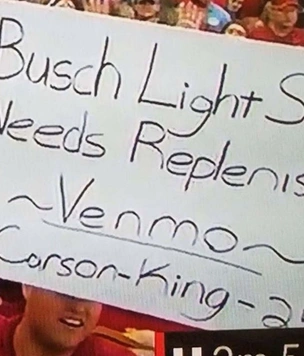 Busch Light S
Needs Replenis
~Venmo~
Carson-King-2